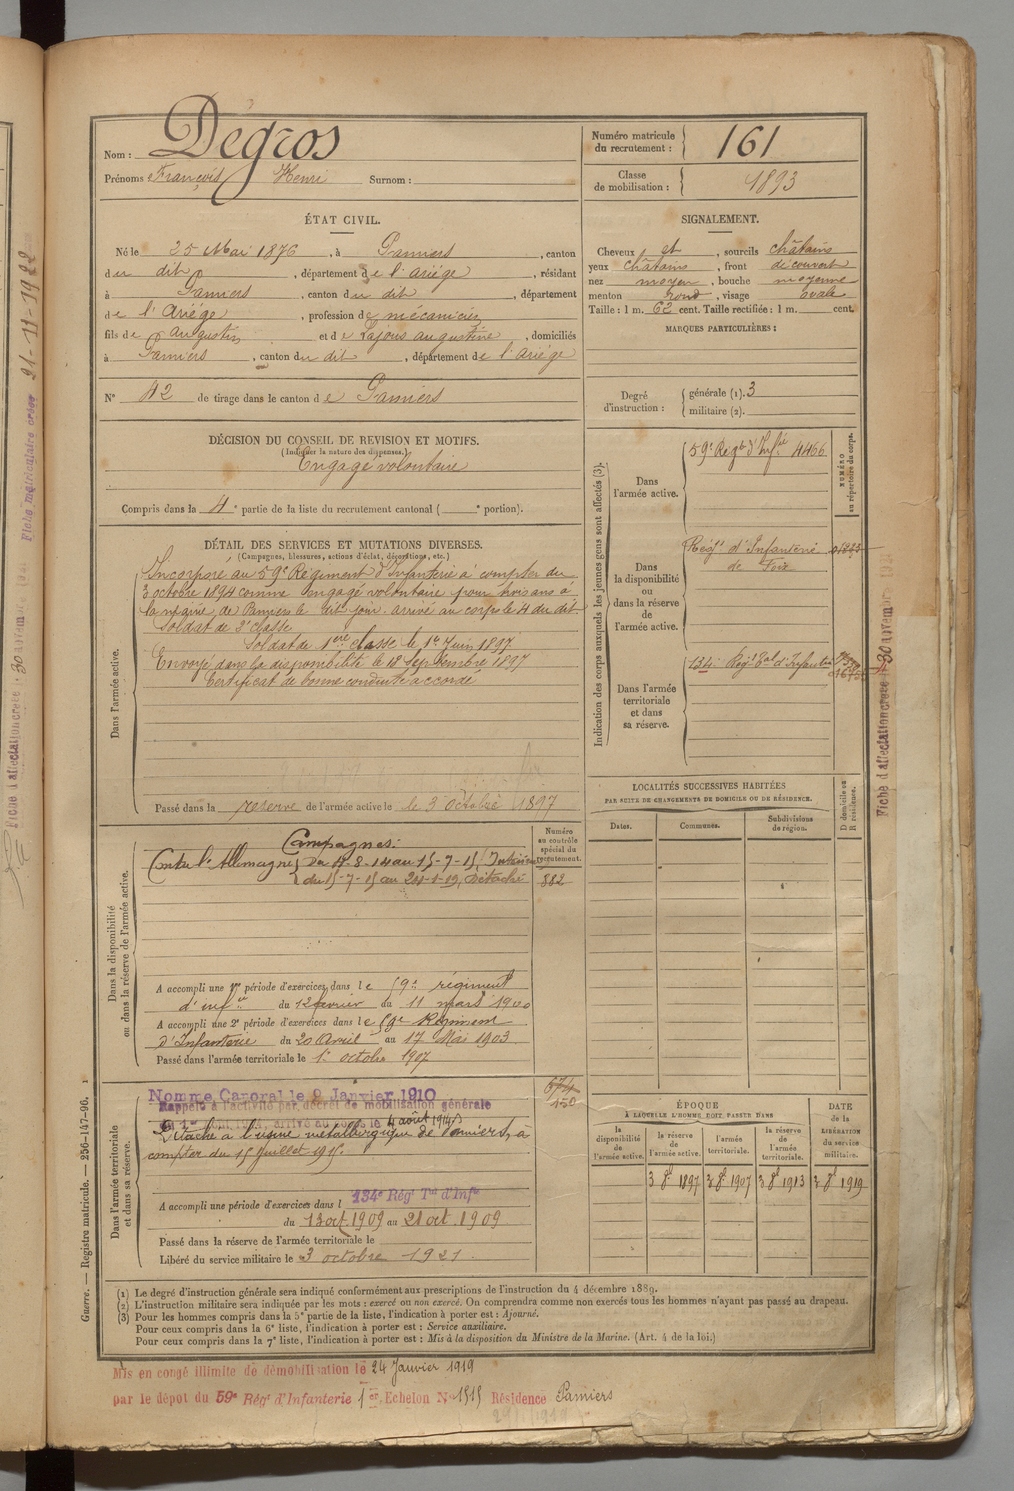 Nom : Dégros
Prénoms François Henri Surnom :
Numéro matricule du recrutement : 161
Classe de mobilisation : 1893
ÉTAT CIVIL.
Né le 25 Mai 1876, à Pamiers, canton
du dit, département de l'ariége, résidant
à Pamiers, canton du dit, département
de l'Ariége, profession de mécanicien
fils de augustin et de Lajous augustine, domiciliés
à Pamiers, canton du dit, département de l'ariége
N° 42 de tirage dans le canton de Pamiers
SIGNALEMENT.
Cheveux et, sourcils châtains
yeux châtains, front découvert
nez moyen, bouche moyenne
menton rond, visage ovale
Taille : 1 m. 62 cent. Taille rectifiée : 1 m. cent.
MARQUES PARTICULIÈRES :
Degré d'instruction : générale (1). 3
militaire (2).
DÉCISION DU CONSEIL DE REVISION ET MOTIFS.
(Indiquer la nature des dispenses.)
Engagé volontaire
Compris dans la 4e partie de la liste du recrutement cantonal ( e portion).
DÉTAIL DES SERVICES ET MUTATIONS DIVERSES.
(Campagnes, blessures, actions d'éclat, décorations, etc.)
Dans l'armée active.
Incorporé au 59e Régiment d'Infanterie à compter du
3 octobre 1894 comme engagé volontaire pour trois ans à
la mairie de Pamiers le dit jour. arrivé au corps le 4 du dit.
Soldat de 2e classe
Soldat de 1ere classe le 1er Juin 1897
Envoyé dans la disponibilité le 18 Septembre 1897
Certificat de bonne conduite accordé
Passé dans la reserve de l'armée active le 3 Octobre 1897
Indication des corps auxquels les jeunes gens sont affectés (3).
NUMÉRO au répertoire du corps.
Dans l'armée active.
59e Régt d'Infie 4466
Dans la disponibilité ou dans la réserve de l'armée active.
Régt d'Infanterie
de Foix
Dans l'armée territoriale et dans sa réserve.
134e Régt Tal d'Infanterie
LOCALITÉS SUCCESSIVES HABITÉES
PAR SUITE DE CHANGEMENTS DE DOMICILE OU DE RÉSIDENCE.
Dates. Communes. Subdivisions de région. D domicile ou R résidence.
Dans la disponibilité ou dans la réserve de l'armée active.
Numéro au contrôle spécial du recrutement.
882
Campagnes :
Contre l'Allemagne du 4-8-14 au 15-7-15, Intérieur
du 15-7-15 au 24-1-19, Détaché
A accompli une 1re période d'exercices dans le 59e régiment
d'infie du 12 février au 11 mars 1900
A accompli une 2e période d'exercices dans le 59e Régiment
d'Infanterie du 20 Avril au 17 Mai 1903
Passé dans l'armée territoriale le 1er octobre 1907
Dans l'armée territoriale et dans sa réserve.
674
150
Nommé Caporal le 9 Janvier 1910
Rappelé à l'activité par décret de mobilisation générale
du 1er août 1914, arrivé au corps le 4 août 1914
Détaché à l'usine métallurgique de Pamiers, à
compter du 15 Juillet 1915.
134e Rég Tal d'Infie
A accompli une période d'exercices dans l
du 13 oct. 1909 au 21 oct. 1909
Passé dans la réserve de l'armée territoriale le
Libéré du service militaire le 3 octobre 1921.
ÉPOQUE
À LAQUELLE L'HOMME DOIT PASSER DANS
la disponibilité de l'armée active. la réserve de l'armée active. l'armée territoriale. la réserve de l'armée territoriale.
DATE de la LIBÉRATION du service militaire.
3 8e 1897 3 8e 1907 3 8e 1913 3 8e 1919
(1) Le degré d'instruction générale sera indiqué conformément aux prescriptions de l'instruction du 4 décembre 1889.
(2) L'instruction militaire sera indiquée par les mots : exercé ou non exercé. On comprendra comme non exercés tous les hommes n'ayant pas passé au drapeau.
(3) Pour les hommes compris dans la 5e partie de la liste, l'indication à porter est : Ajourné.
Pour ceux compris dans la 6e liste, l'indication à porter est : Service auxiliaire.
Pour ceux compris dans la 7e liste, l'indication à porter est : Mis à la disposition du Ministre de la Marine. (Art. 4 de la loi.)
Mis en congé illimité de démobilisation le 24 Janvier 1919
par le dépôt du 59e Régt d'Infanterie 1er Echelon N° 1515 Résidence Pamiers
Guerre. — Registre matricule. — 256-147-96. 1
Fiche matriculaire créée 21-11-1922
Fiche d'affectation créée 30 novembre
Fiche d'affectation créée 30 novembre